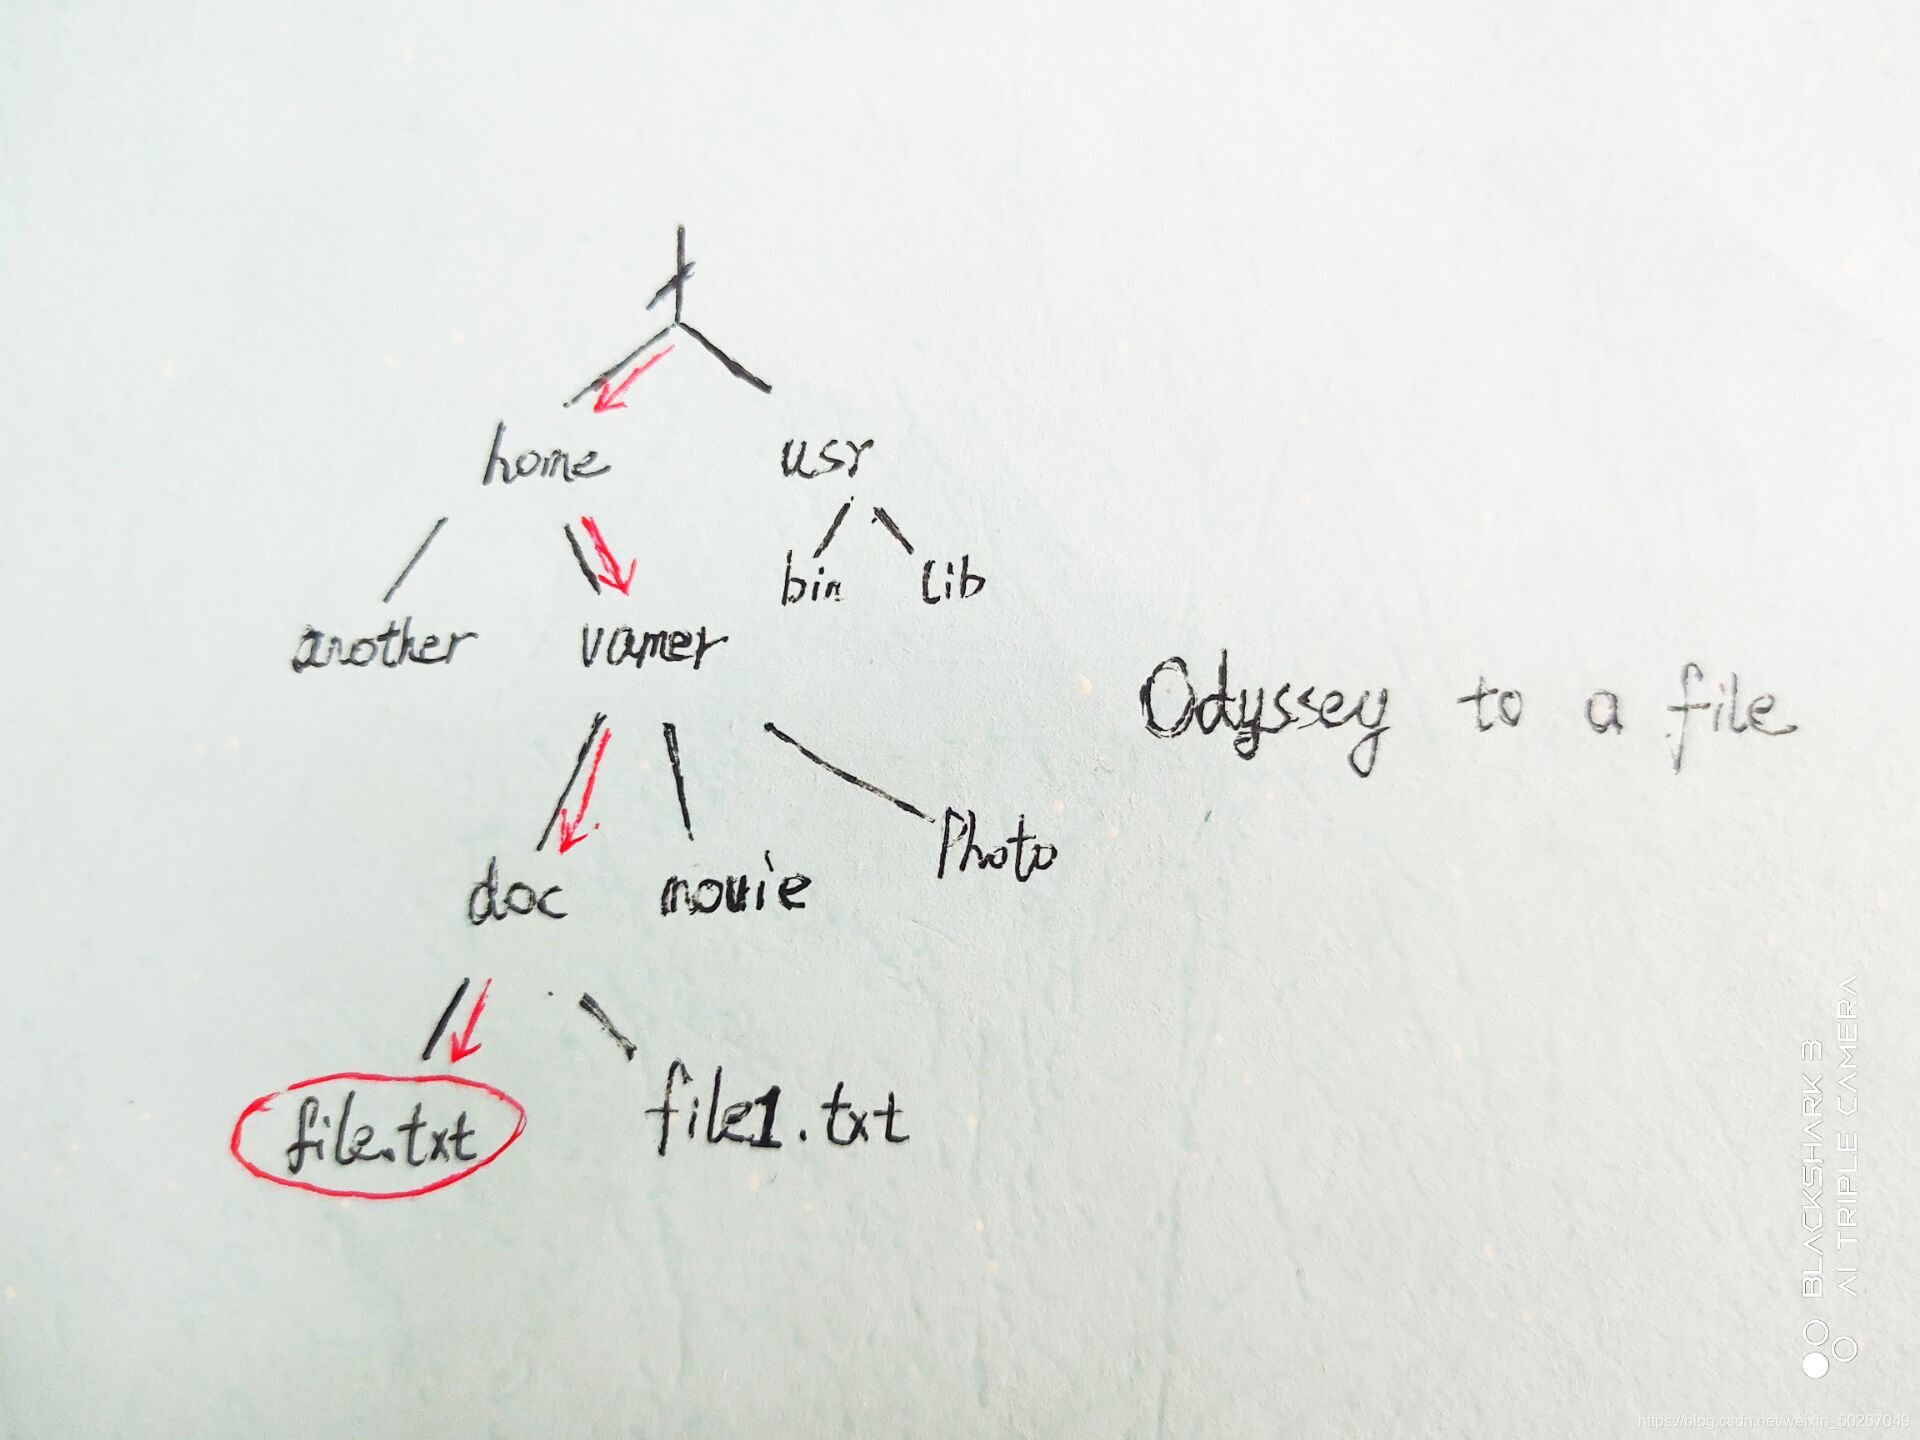 /
home usr
bin lib
another vamer
Odyssey to a file
doc movie Photo
file.txt file1.txt
BLACKSHARK 3
AI TRIPLE CAMERA
https://blog.csdn.net/weixin_50267049